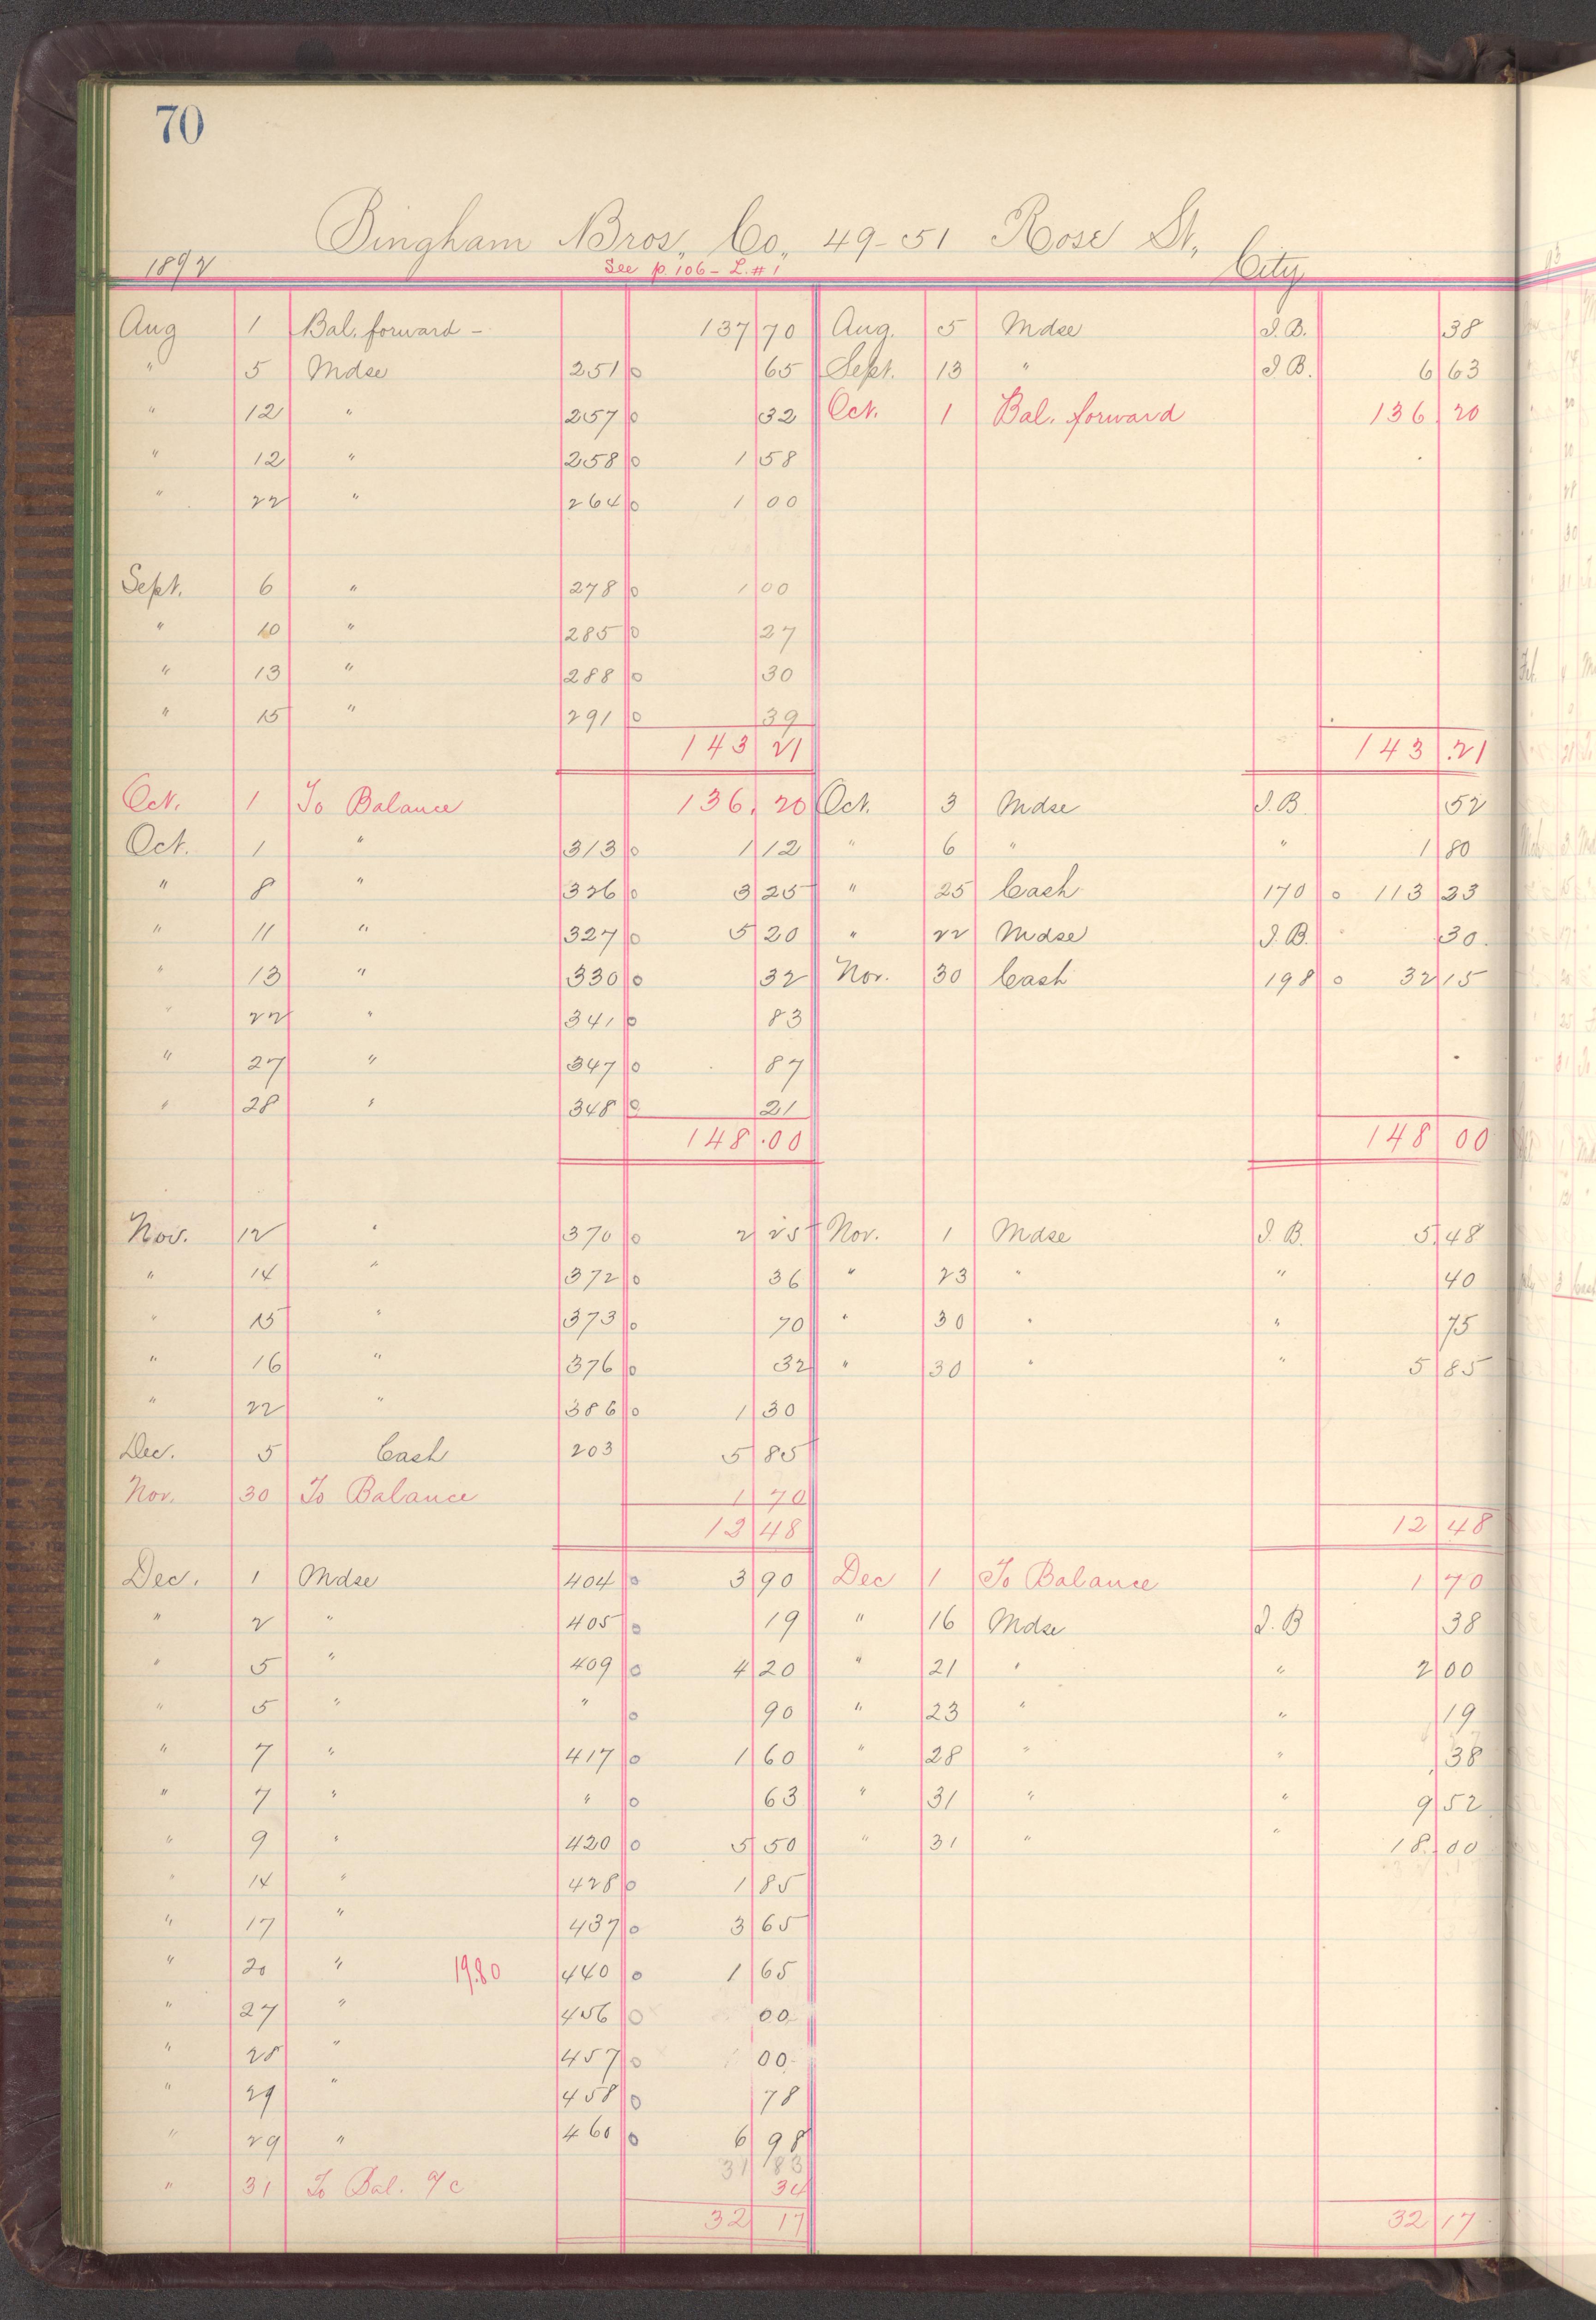 70
Bingham Bros., Co., 49-51 Rose St., City
1892 See p. 106 - L. #1
Aug 1 Bal. forward - 137 70 Aug. 5 Mdse I.B. 38
" 5 Mdse 251 0 65 Sept. 13 " I.B. 6 63
" 12 " 257 0 32 Oct. 1 Bal. forward 136 20
" 12 " 258 0 1 58
" 22 " 264 0 1 00
Sept. 6 " 278 0 1 00
" 10 " 285 0 27
" 13 " 288 0 30
" 15 " 291 0 39
143 21 143.21
Oct. 1 To Balance 136.20 Oct. 3 Mdse I.B. 52
Oct. 1 " 313 0 1 12 " 6 " " 1 80
" 8 " 326 0 3 25 " 25 Cash 170 0 113 23
" 11 " 327 0 5 20 " 22 Mdse I.B. 30
" 13 " 330 0 32 Nov. 30 Cash 198 0 32 15
" 22 " 341 0 83
" 27 " 347 0 87
" 28 " 348 0 21
148.00 148 00
Nov. 12 " 370 0 2 25 Nov. 1 Mdse I.B. 5 48
" 14 " 372 0 36 " 23 " " 40
" 15 " 373 0 70 " 30 " " 75
" 16 " 376 0 32 " 30 " " 5 85
" 22 " 386 0 1 30
Dec. 5 Cash 203 5 85
Nov. 30 To Balance 1 70
12 48 12 48
Dec. 1 Mdse 404 0 3 90 Dec 1 To Balance 1 70
" 2 " 405 0 19 " 16 Mdse I.B 38
" 5 " 409 0 4 20 " 21 " " 2 00
" 5 " " 0 90 " 23 " " 19
" 7 " 417 0 1 60 " 28 " " 38
" 7 " " 0 63 " 31 " " 9 52
" 9 " 420 0 5 50 " 31 " " 18.00
" 14 " 428 0 1 85
" 17 " 437 0 3 65
" 20 " 19.80 440 0 1 65
" 27 " 456 0 00
" 28 " 457 0 00
" 29 " 458 0 78
" 29 " 460 0 6 98
31 83
" 31 To Bal. a/c 34
32 17 32 17